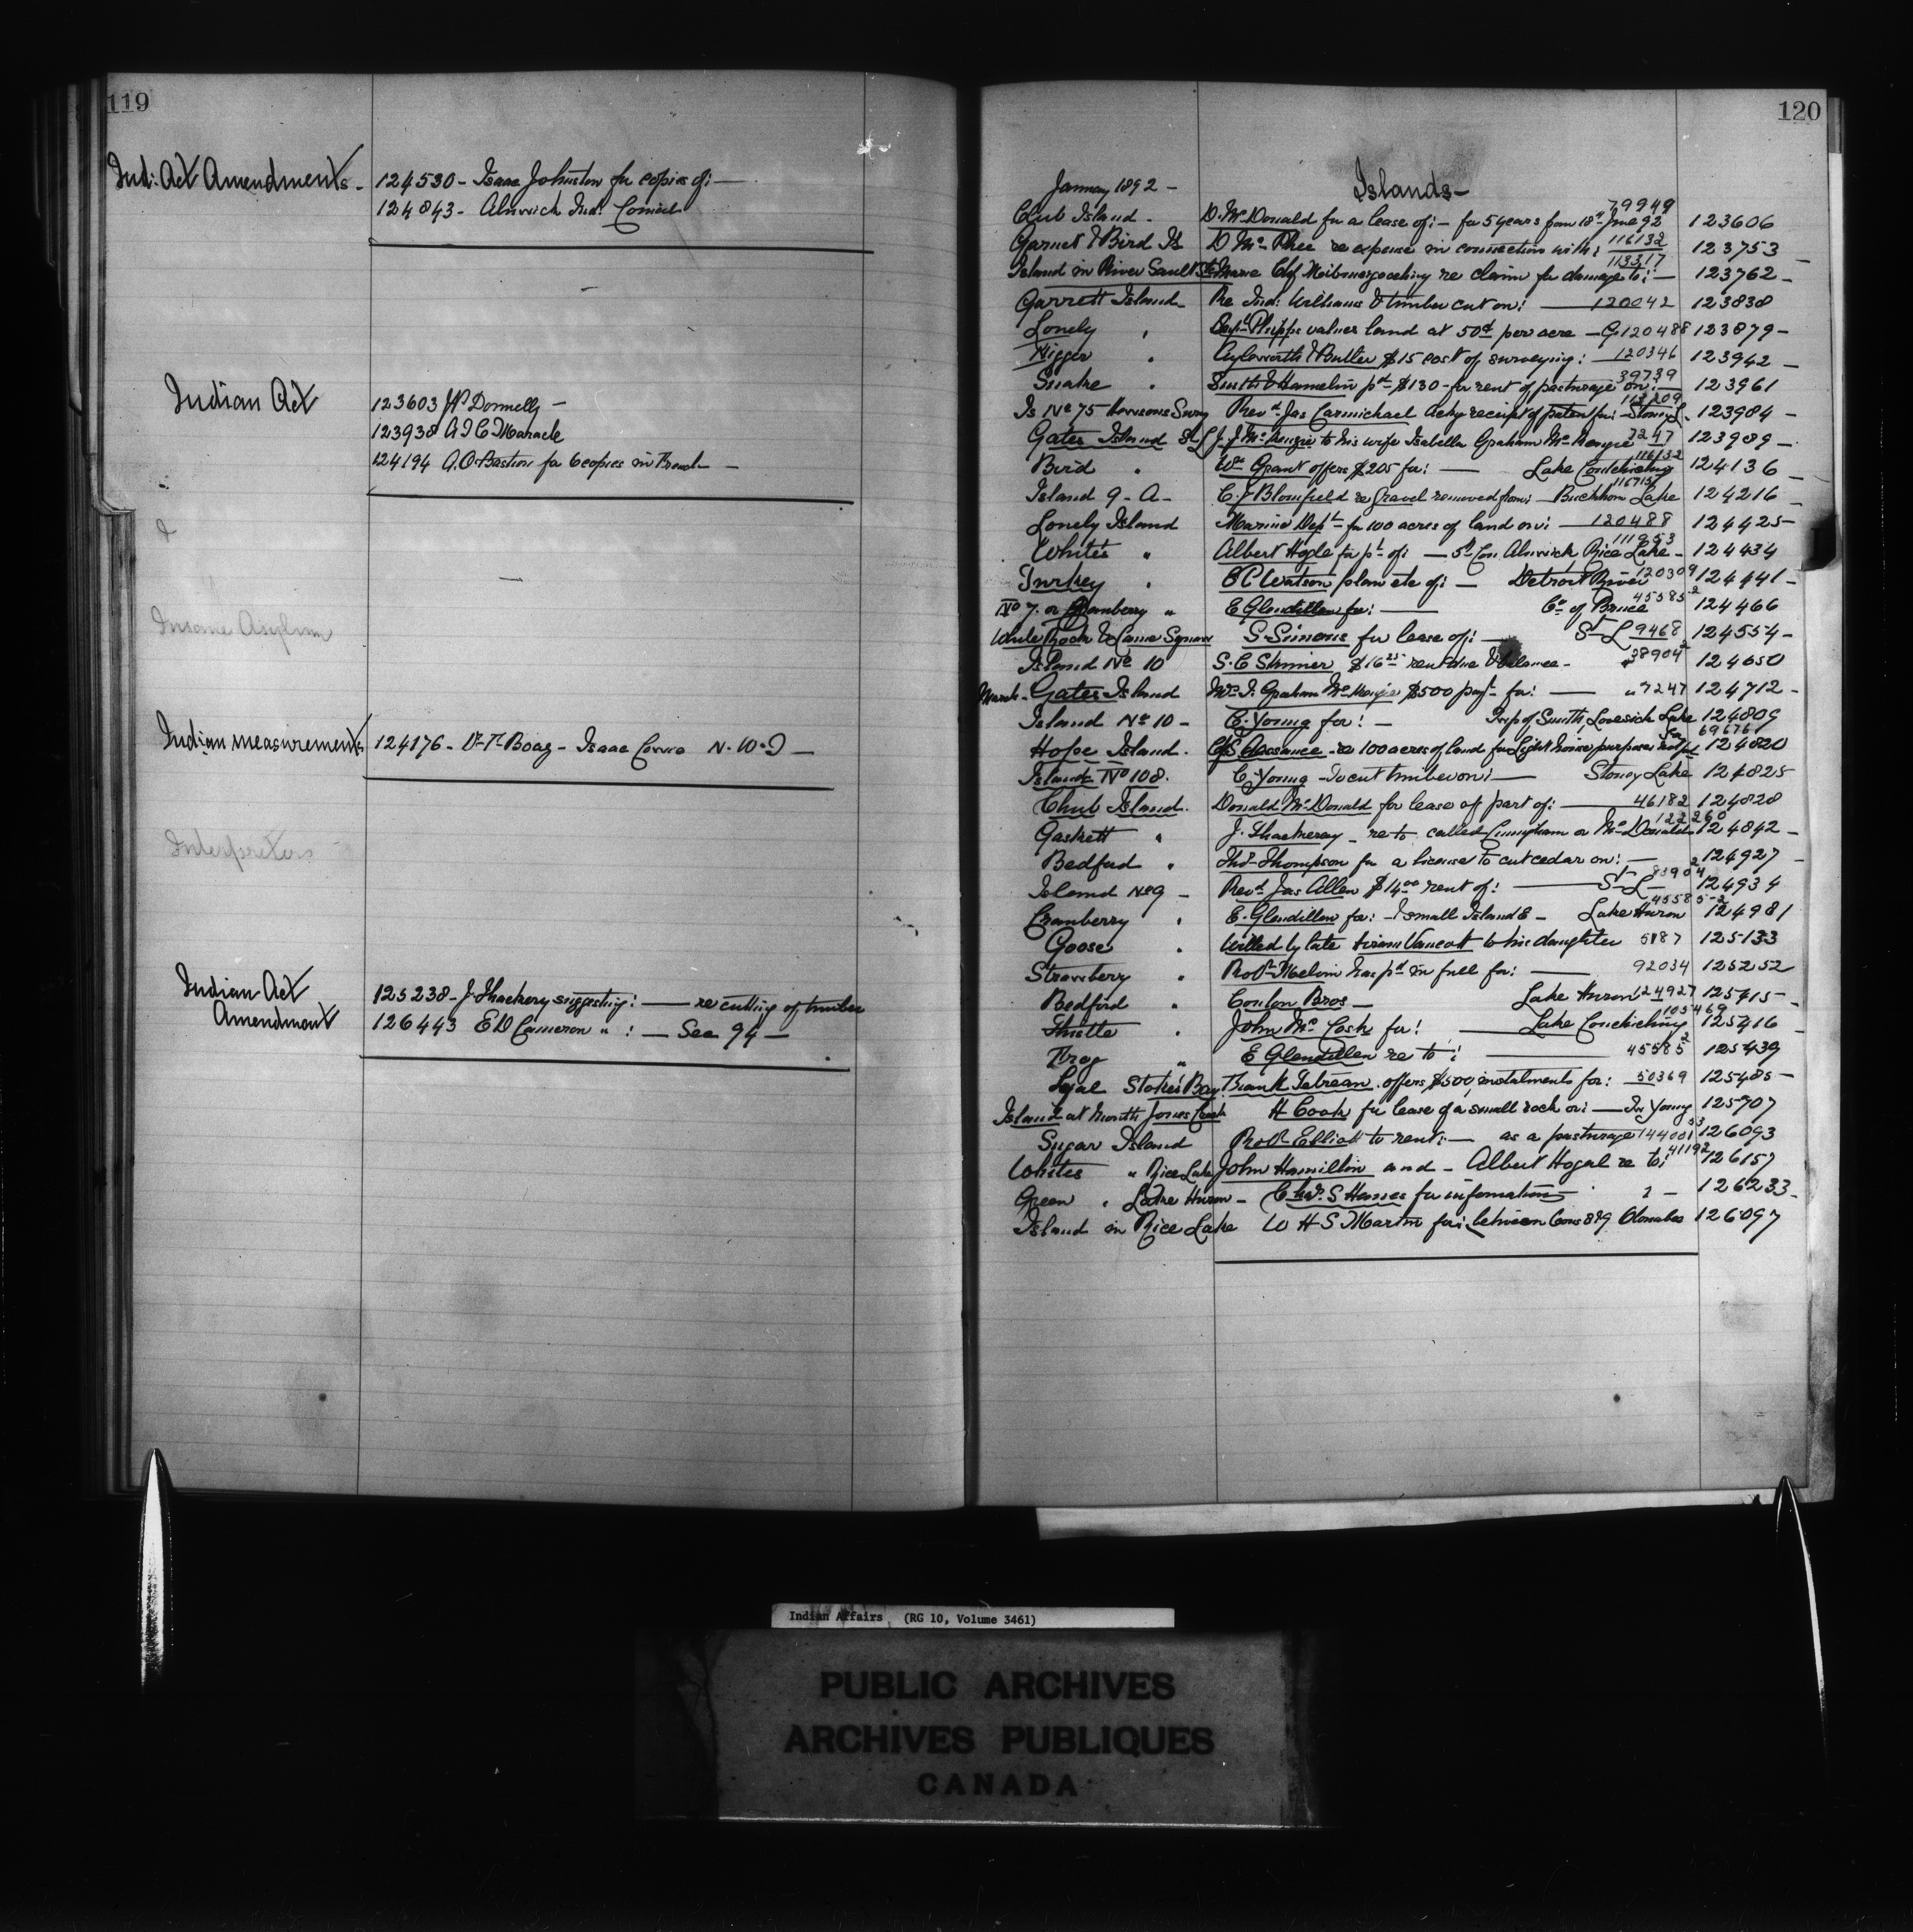 119
Ind: Act Amendments - 124530 - Isaac Johnston for copies of: —
124843 - Alnwick Ind: Council
Indian Act
123603 JP Donnelly —
123938 A J C Maracle
124194 A.O. Bastien for 6 copies in French —
&
Insane Asylum
Indian measurements 124176 - Dr T Boag - Isaac Cowie N.W.T —
Interpreters
Indian Act Amendment
125238 - J. Thackery suggesting: — re cutting of timber
126443 E D Cameron " : — See 94 —
120
January 1892 - Islands -
79949
Chub Island - D. McDonald for a lease of: - for 5 years from 18th June 92 123606
Garnet & Bird Is D Mc Phee re expense in connection with: 116132 123753 -
Island in River Sault Ste Marie Chf re claim for damage to: - 113317 123762 -
Garrett Island - Re Ind: Williams & timber cut on: — 120042 123838
Lonely " Capt Phipps values land at 50¢ per acre - 120488 123879 -
Nigger " Aylsworth & Butler $15 cost of surveying: 120346 123942 -
Snake " Smith & Hamelin pd $130 - for rent of pasturage on: — 39739 123961
Is No 75 Revd Jas Carmichael ackg receipt of patent for: - Stoney L. 113209 123984 -
Gates Island St L J. J McKenzie to his wife Isabella Graham McKenzie 7247 123989 -
Bird " Wm Grant offers $205 for: — Lake Couchiching 116132 124136 -
Island 9 - A - C. J Blomfield re gravel removed from: Buckhorn Lake 116715 124216 -
Lonely Island Marine Dept - for 100 acres of land on: — 120488 124425 -
White's " Albert Hogle for pt of: — 5th Con Alnwick Rice Lake - 111953 124434
Turkey " C C Watson plan etc of: — Detroit River 120309 124441 -
No 7. or Cranberry " E Glendillen for: — Co of Bruce 45585-2 124466
White Rock & Canoe Squaw S. Simons for lease of: — St L 9468 124554 -
Island No 10 S. C Skinner $16 25 rent due & balance - " 38904 124650
March - Gates Island Mrs I. Graham McKenzie $500 payt for: — " 7247 124712 -
Island No 10 - C. Young for: — Twp of Smith, Lovesick Lake 124809
Hope Island. re 100 acres of land for Light house purposes 69676 124820
Island No 108. C. Young - to cut timber on: — Stoney Lake 124825
Chub Island. Donald McDonald for lease of part of: — 46182 124828
Gaskett " J. Thackeray - re to called Cunningham or McDonald 122260 124842 -
Bedford " Thos Thompson for a license to cut cedar on: — 124927 -
Island No 9 - Revd Jas Allen $14 00 rent of: — St L — 124934
Cranberry " E. Glendillen for: - 1 small Island E - Lake Huron 45585-2 124981
Goose " Willed by late Hiram Vancott to his daughter 5187 125133
Strawberry " Robt Melvin has pd in full for: — 92034 125252
Bedford " Conlon Bros — Lake Huron 124927 125415 -
Thistle " John McCosh for: — Lake Couchiching 105469 125416 -
Frog " E Glendillen re to: — 45585-2 125439
Lyal Stokes Bay Frank Tetreau. offers $500 instalments for: 50369 125485 -
Island at Mouth Jones Creek H Cook for lease of a small rock on: — Tp Yonge 125707
Sugar Island Robt Elliott to rent: — as a pasturage 126093
Whites " Rice Lake John Hamilton and - Albert Hogal re to: 41192 126157
Green " Lake Huron - Chas. S Hanes for information 126233 -
Island in Rice Lake W H S Martin for: between Cons 8 & 9 Otonabee 126097
Indian Affairs (RG 10, Volume 3461)
PUBLIC ARCHIVES
ARCHIVES PUBLIQUES
CANADA